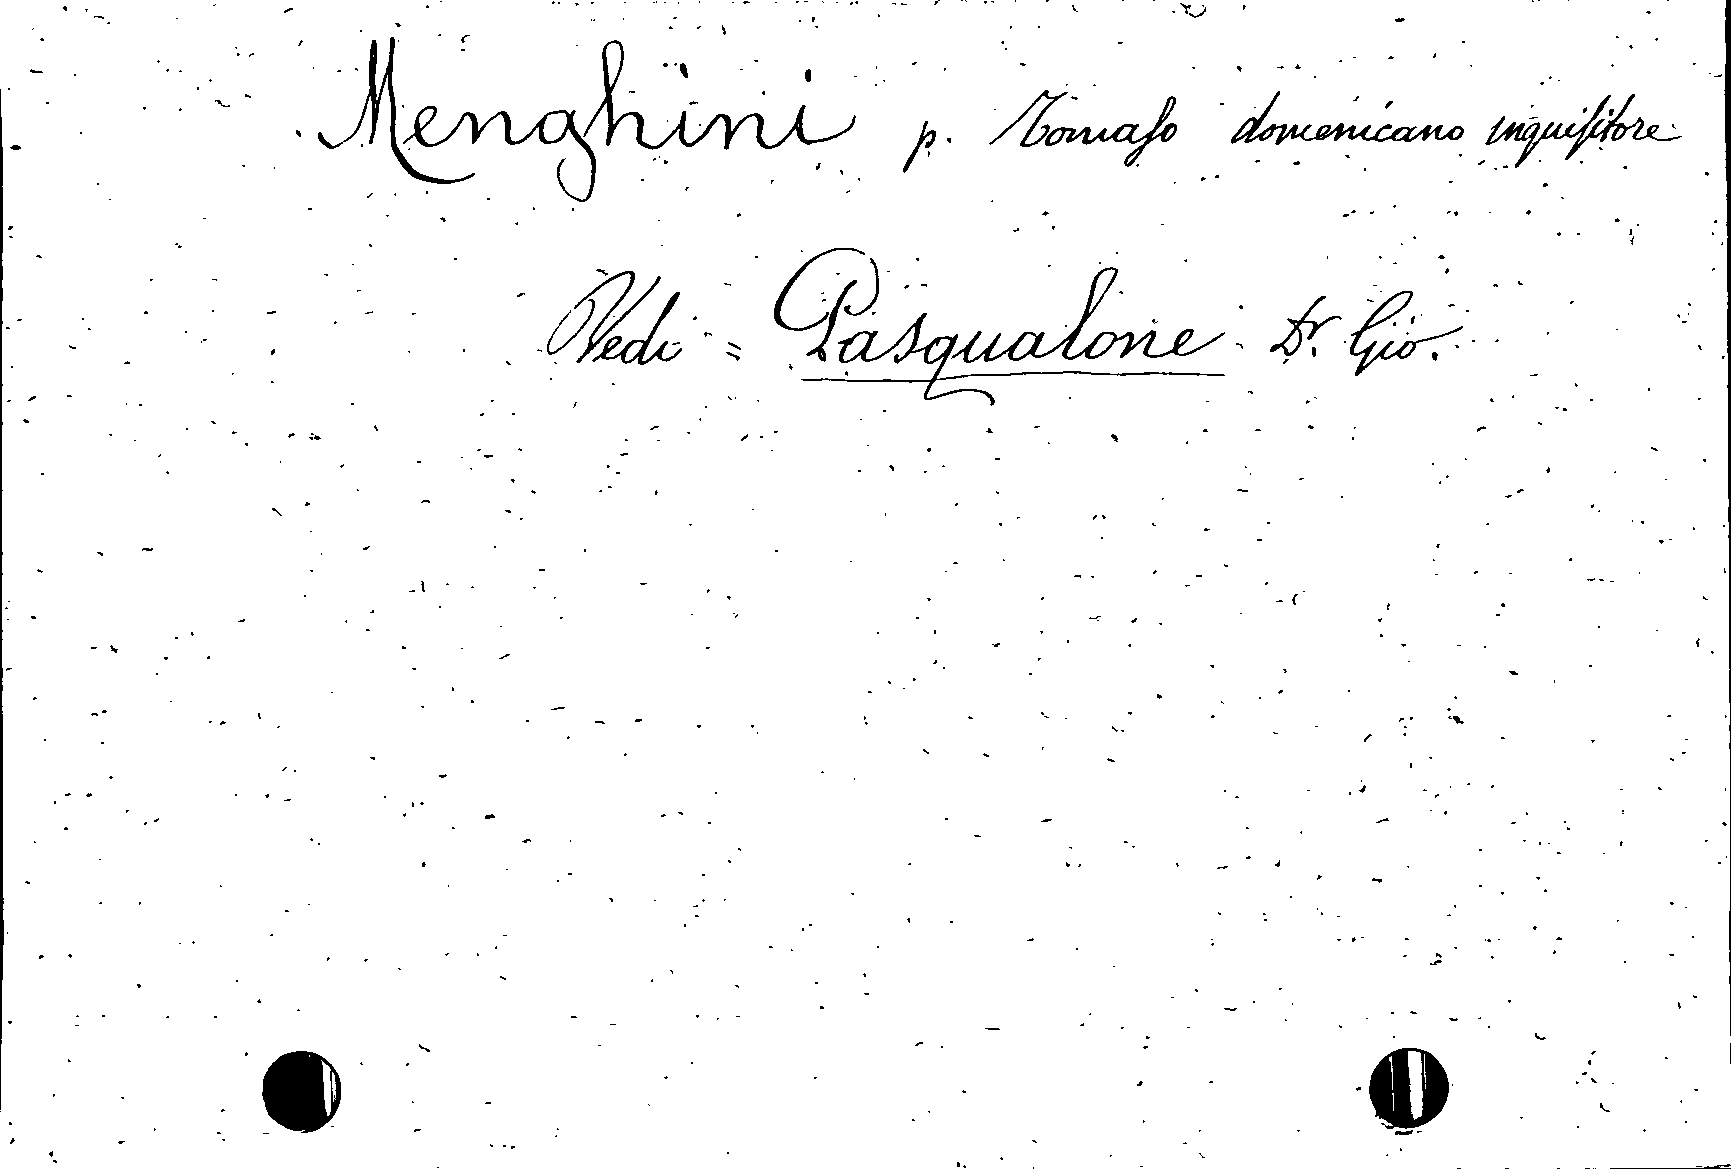 Menghini p. Tomaso domenicano inquisitore
Vedi = Pasqualone Dr. Gio.